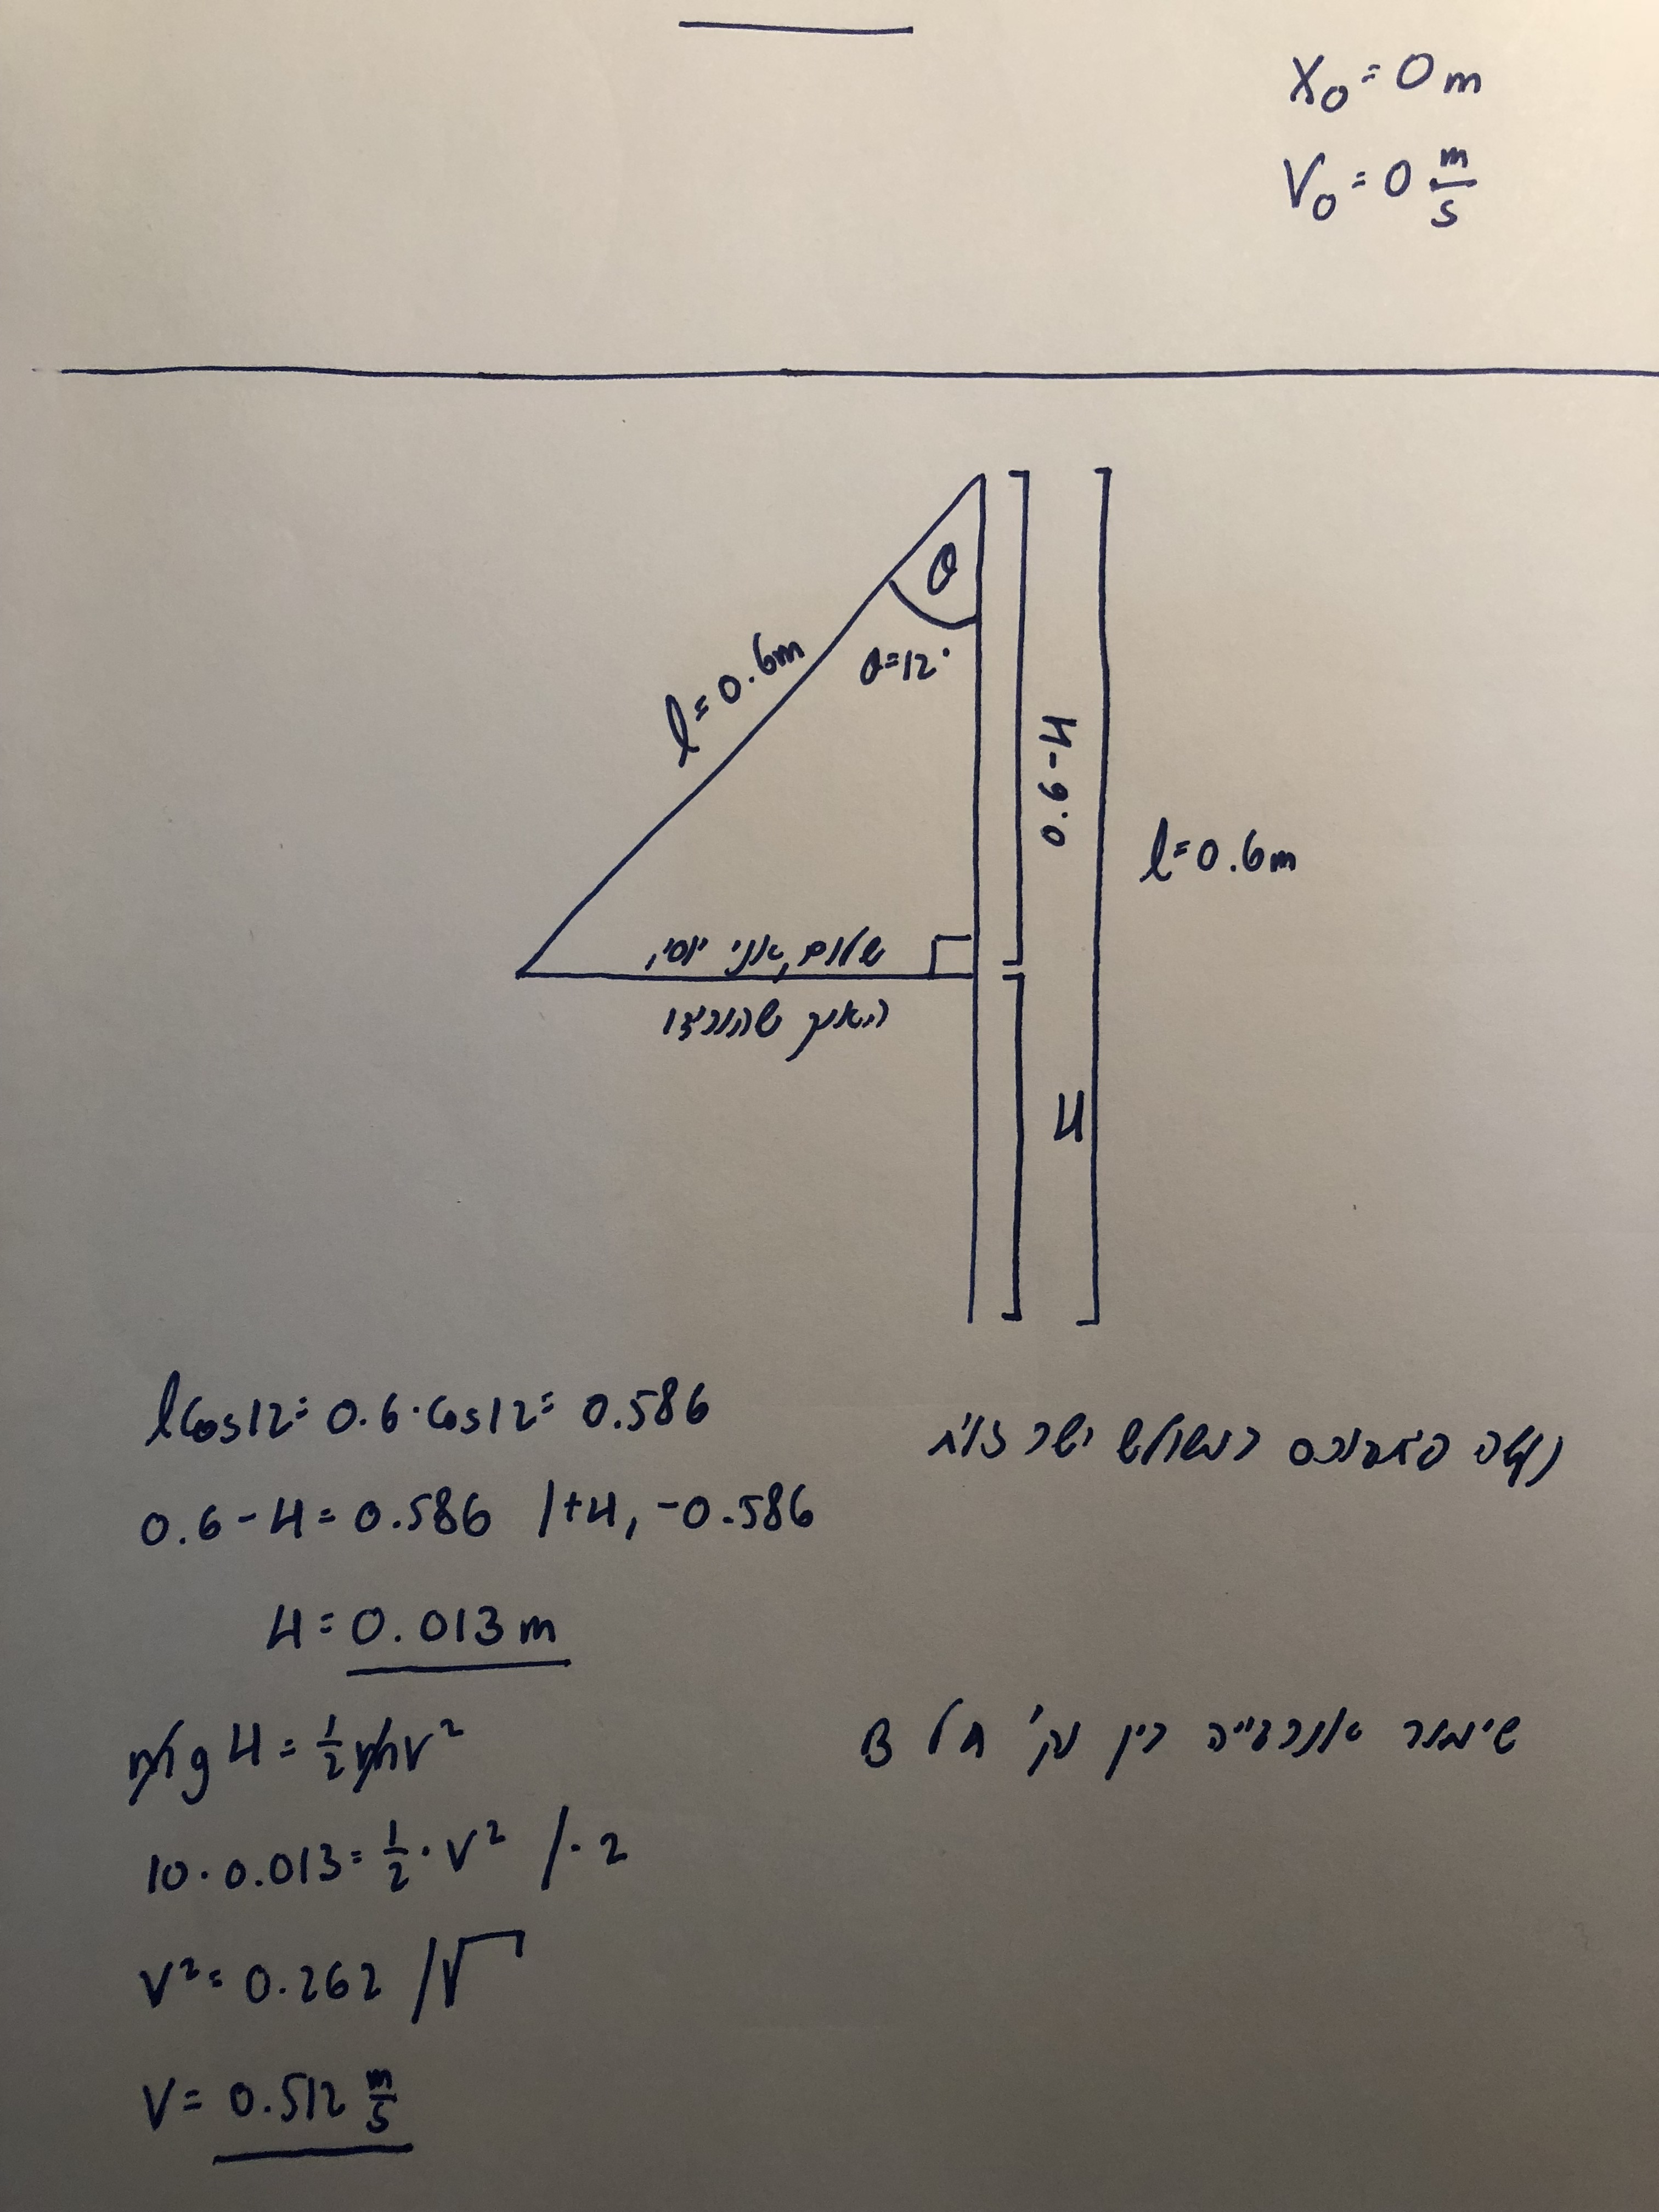 X₀ = 0 m
V₀ = 0 m/s
θ
θ=12°
l=0.6m
0.6-H
l=0.6m
שלום, אני יוסי,
האנך שהורידו
H
lcos12 = 0.6·cos12 = 0.586
נעשה פיתגורס במשולש ישר זווית
0.6-H = 0.586 /+H, -0.586
H = 0.013 m
mgH = ½mv²
שימור אנרגייה בין נק' A ל B
10·0.013 = ½·v² /·2
v² = 0.262 /√
v = 0.512 m/s